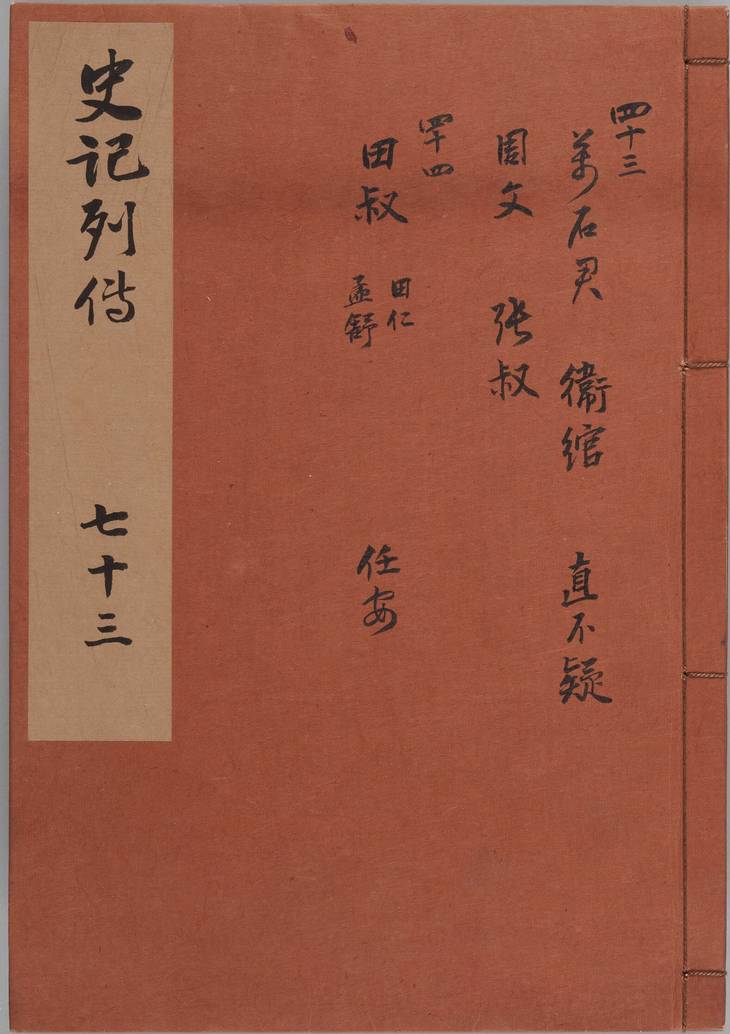 四十三
萬石君 衛綰 直不疑
周文 張叔
四十四
田叔 田仁 任安
孟舒
史記列傳 七十三